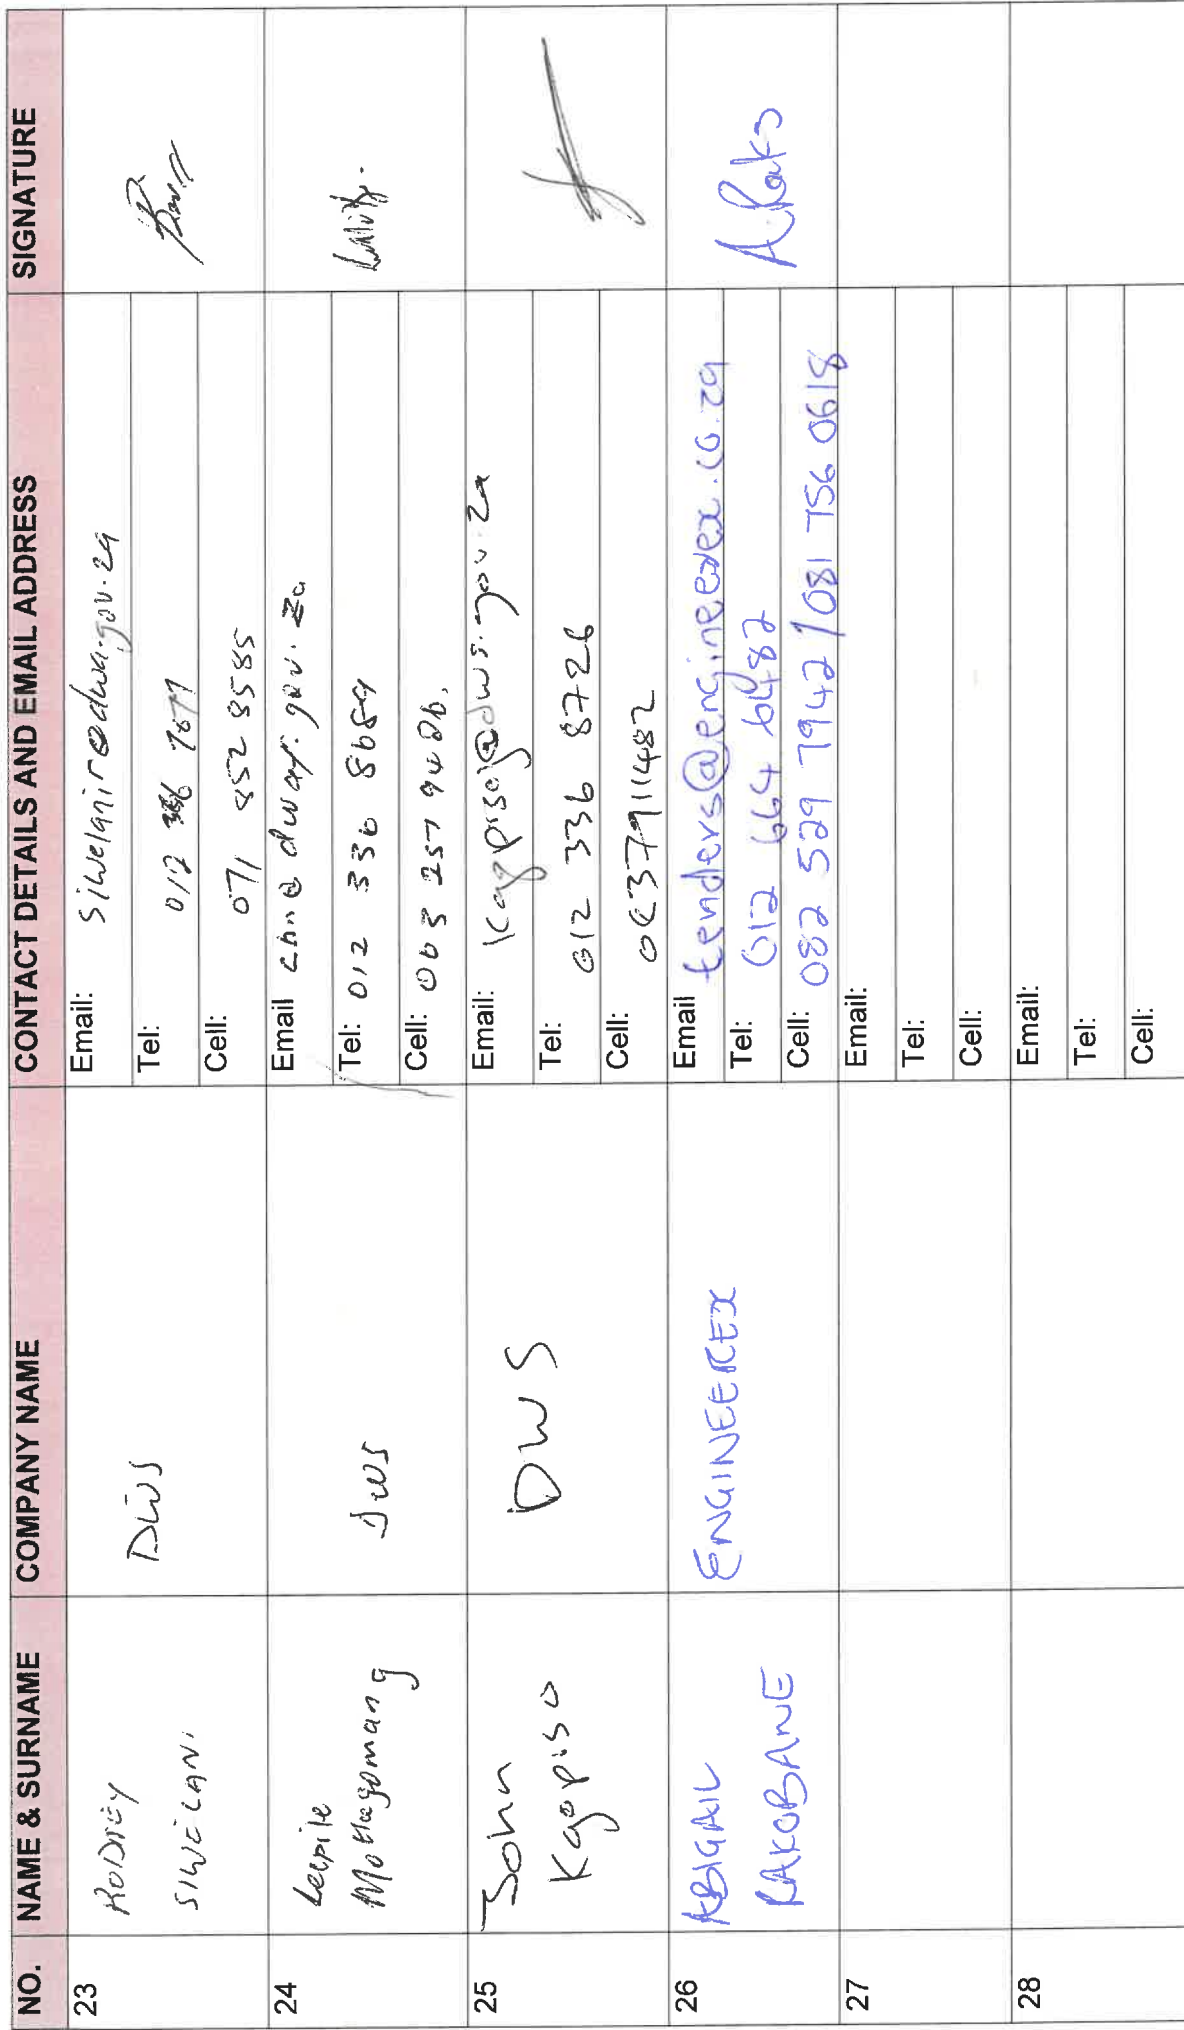 NO. NAME & SURNAME COMPANY NAME CONTACT DETAILS AND EMAIL ADDRESS SIGNATURE
23 RODNEY SIWELANI DWS
Email: siwelanir@dwa.gov.za
Tel: 012 336 7677
Cell: 071 852 8585
24 Lerpile Motlagomang DWS
Email chn@dwaf.gov.za
Tel: 012 336 8689
Cell: 063 257 9426.
25 John Kgopiso DWS
Email: Kagpisoj@dws.gov.za
Tel: 012 336 8726
Cell: 0637911482
26 ABIGAIL RAKOBANE ENGINEEREX
Email tenders@engineerex.co.za
Tel: 012 664 6482
Cell: 082 529 7942 / 081 756 0618
A. Rako
27
Email:
Tel:
Cell:
28
Email:
Tel:
Cell: